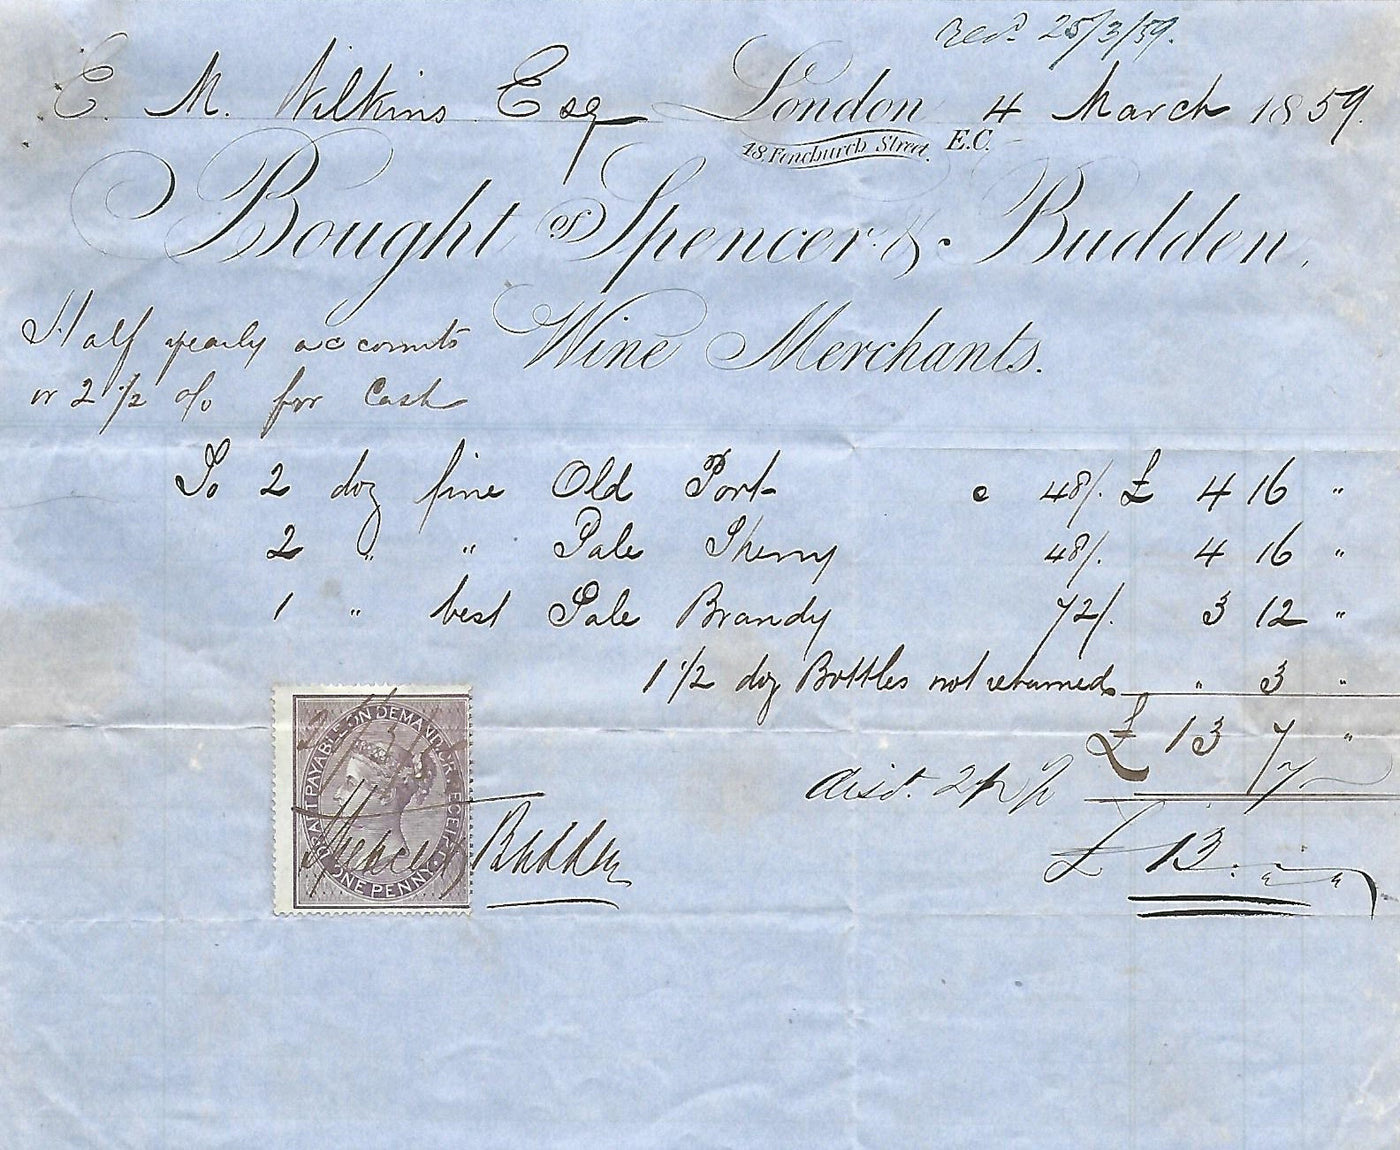 recd. 25/3/59.
E. M. Wilkins Esq London 4 March 1859.
48 Fenchurch Street. E.C.
Bought of Spencer & Budden,
Wine Merchants.
Half yearly accounts
or 2 1/2 % for Cash
To 2 doz fine Old Port @ 48/. £ 4 16 "
2 " " Pale Sherry 48/. 4 16 "
1 " best Pale Brandy 72/. 3 12 "
1 1/2 doz Bottles not returned " 3 "
£ 13 7 "
disct. 2 1/2 % 7
£ 13 . " "
DRAFT PAYABLE ON DEMAND OR RECEIPT
ONE PENNY
Spencer Budden